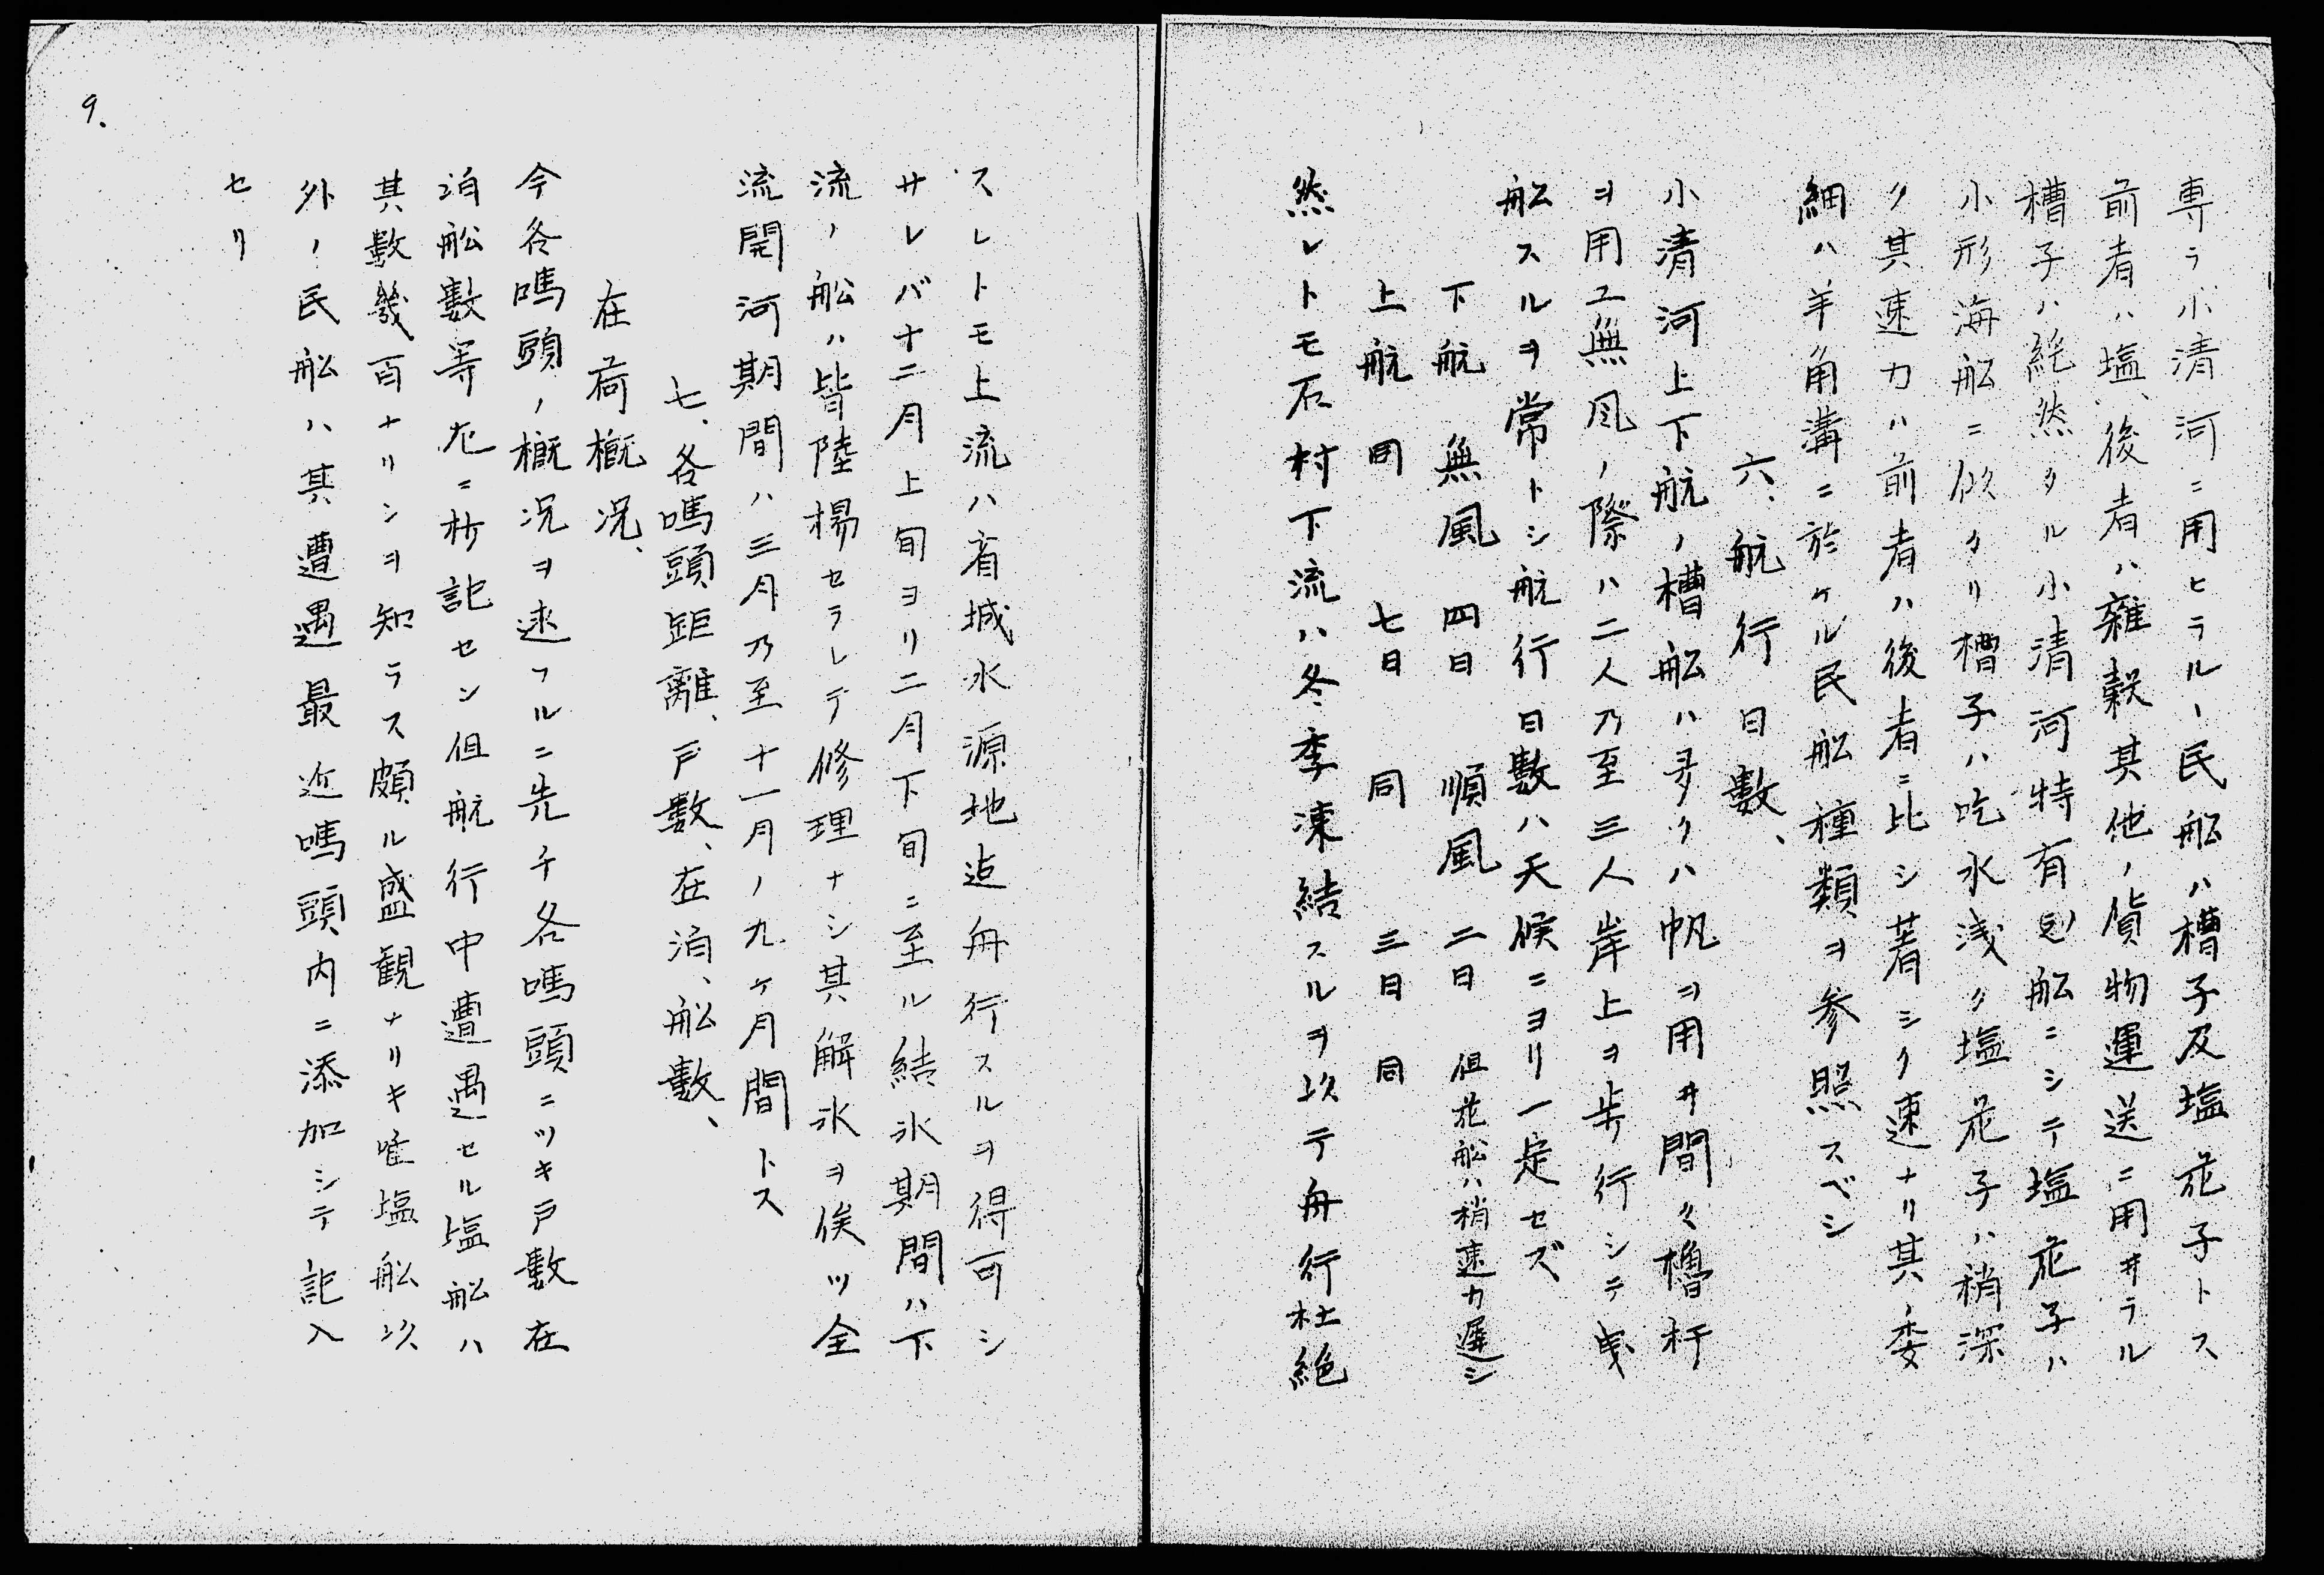 専ラ小清河ニ用ヒラルヽ民船ハ槽子及塩菰子トス
前者ハ塩、後者ハ雑穀其他ノ貨物運送ニ用ヰラル
槽子ハ純然タル小清河特有ノ船ニシテ塩菰子ハ
小形海船ニ似タリ槽子ハ吃水浅ク塩菰子ハ稍深
ク其速力ハ前者ハ後者ニ比シ著シク速ナリ其ノ委
細ハ羊角溝ニ於ケル民船種類ヲ参照スベシ
六、航行日數、
小清河上下航ノ槽船ハ多クハ帆ヲ用ヰ間々櫓杆
ヲ用ユ無風ノ際ハ二人乃至三人岸上ヲ歩行シテ曳
船スルヲ常トシ航行日數ハ天候ニヨリ一定セズ
下航 無風 四日 順風 二日 但菰船ハ稍速力遅シ
上航 同 七日 同 三日 同
然レトモ石村下流ハ冬季凍結スルヲ以テ舟行杜絶
スレトモ上流ハ省城水源地迄舟行スルヲ得可シ
サレバ十二月上旬ヨリ二月下旬ニ至ル結氷期間ハ下
流ノ船ハ皆陸揚セラレテ修理ナシ其解氷ヲ俟ツ全
流開河期間ハ三月乃至十一月ノ九ケ月間トス
七、各嗎頭距離、戸數、在泊、船數、
在荷概况、
今各嗎頭ノ概况ヲ述フルニ先チ各嗎頭ニツキ戸數在
泊船數等尤ニ札記セン但航行中遭遇セル塩船ハ
其數幾百ナリシヲ知ラス頗ル盛観ナリキ唯塩船以
外ノ民船ハ其遭遇最近嗎頭内ニ添加シテ記入
セリ
9.